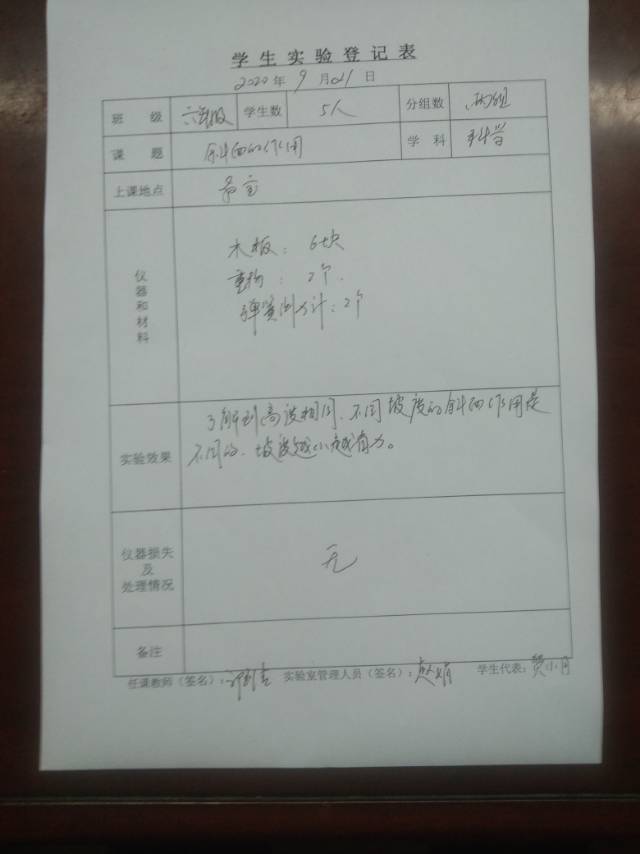 学生实验登记表
2020年9月21日
班级 六年级 学生数 5人 分组数 两组
课题 斜面的作用 学科 科学
上课地点 教室
仪器和材料
木板：6块
重物：2个.
弹簧测力计：2个
实验效果
了解到高度相同、不同坡度的斜面作用是
不同的、坡度越小越省力。
仪器损失及处理情况 无
备注
任课教师（签名）： 实验室管理人员（签名）：赵娟 学生代表：贺小月